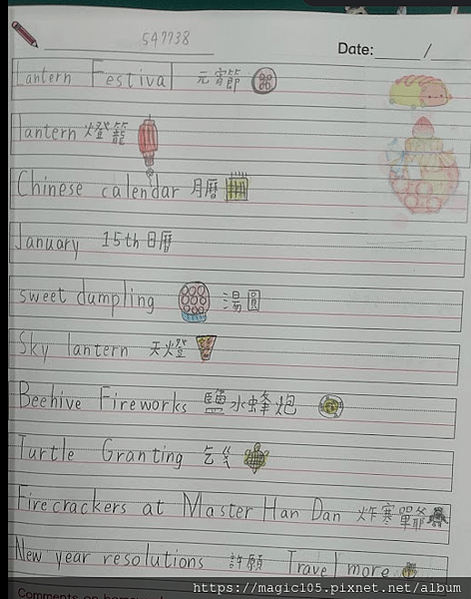 547738
Date:
Lantern Festival 元宵節
lantern 燈籠
Chinese calendar 月曆
January 15th 日曆
sweet dumpling 湯圓
Sky lantern 天燈
Beehive Fireworks 鹽水蜂炮
Turtle Granting 乞龟
Firecrackers at Master Han Dan 炸寒單爺
New year resolutions 許願 Travel more
https://magic105.pixnet.net/album